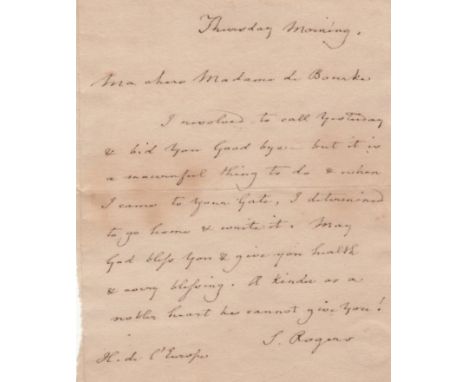 Thursday Morning.
Ma chere Madame de Bourke
I resolved to call Yesterday
& bid You Good bye – but it is
a mournful thing to do & when
I came to Your Gate, I determined
to go home & write it. May
God bless You & give you health
& every blessing. A kinder or a
nobler heart he cannot give You!
S. Rogers
H. de l'Europe